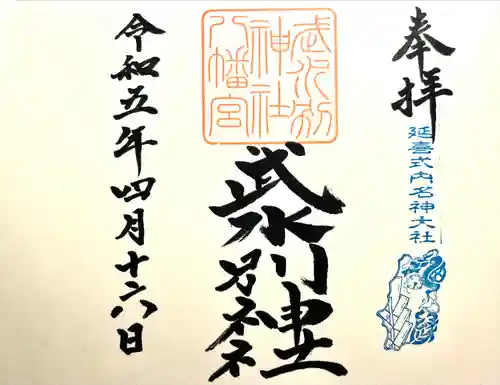 奉拝
延喜式内名神大社
武水別神社
八幡宮
武水別神社
令和五年四月十六日